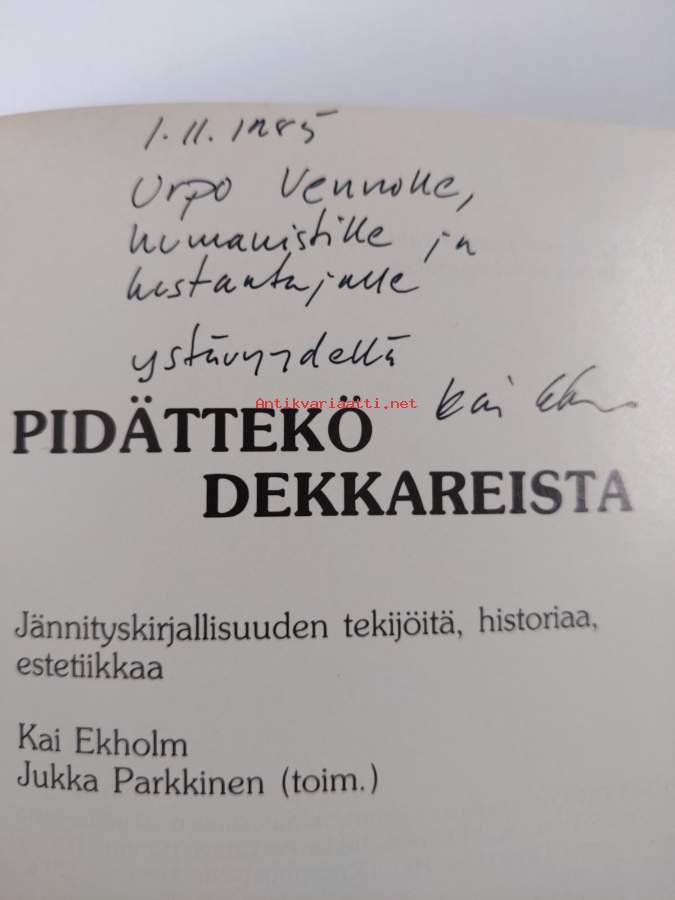 1.11.1985
Urpo Vennolle,
humanistille ja
kustantajalle
ystävyydellä
Antikvariaatti.net
Kai
PIDÄTTEKÖ
DEKKAREISTA
Jännityskirjallisuuden tekijöitä, historiaa,
estetiikkaa
Kai Ekholm
Jukka Parkkinen (toim.)